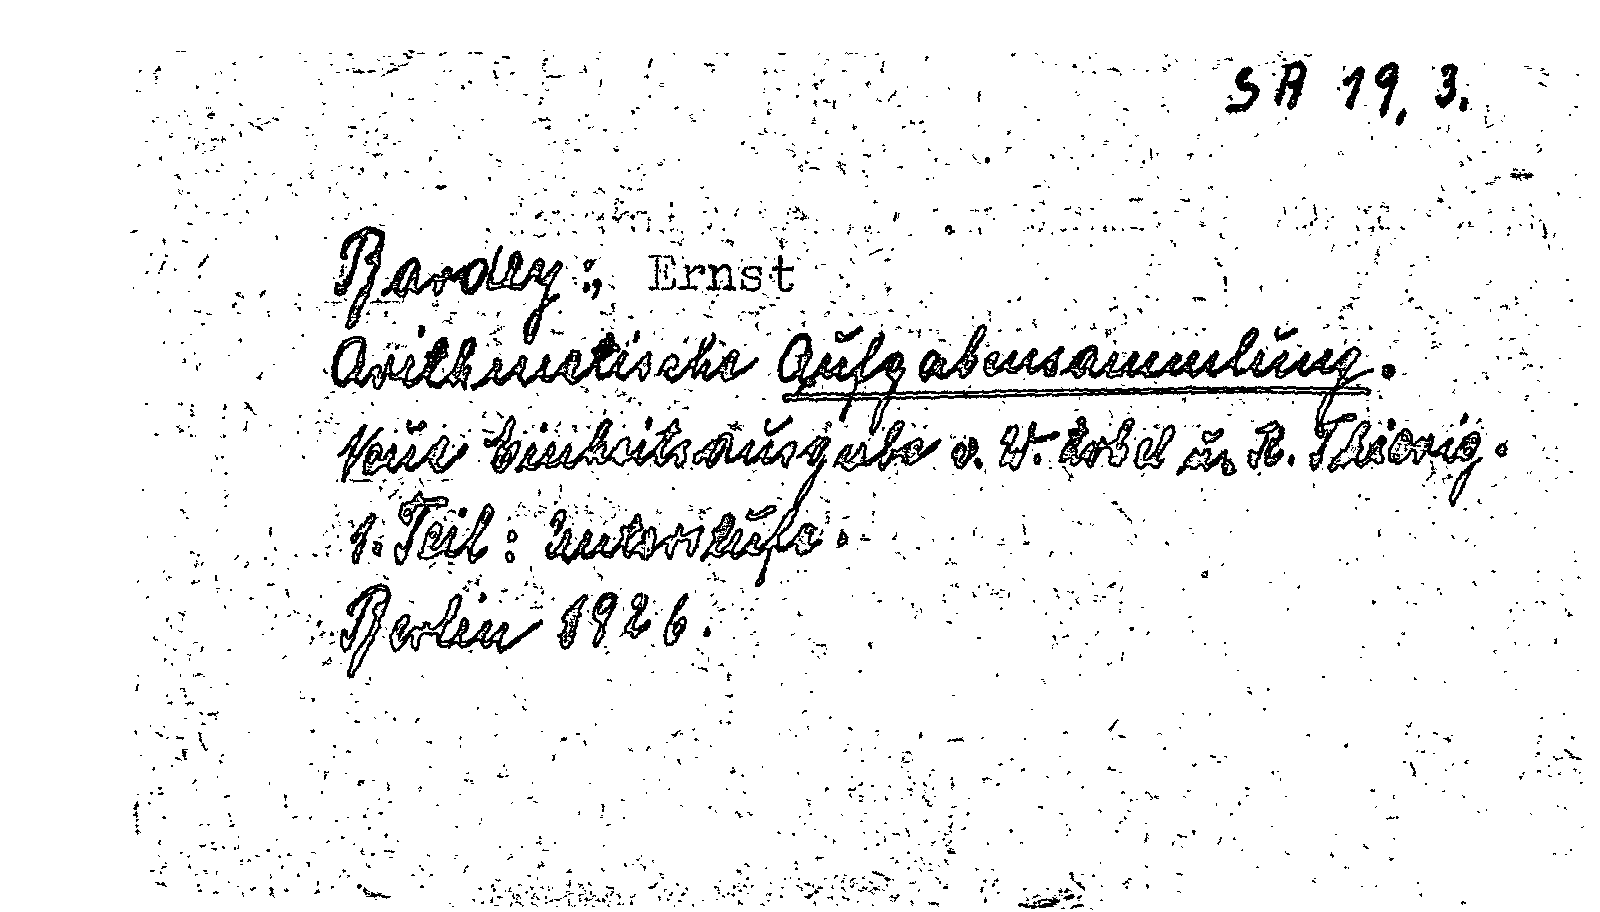 SA 19, 3.
Bardey:, Ernst
Arithmetische Aufgabensammlung.
Neue Einheitsausgabe v. W. Erbel u. R. Thiervig.
1. Teil: Unterstufe.
Berlin 1926.